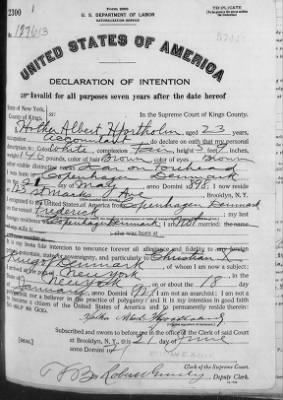 TRIPLICATE
2300
U. S. DEPARTMENT OF LABOR
NATURALIZATION SERVICE
No. 127613
UNITED STATES OF AMERICA
DECLARATION OF INTENTION
Invalid for all purposes seven years after the date hereof
State of New York,
County of Kings, ss:
In the Supreme Court of Kings County.
I, Holger Albert, aged 23 years,
occupation Accountant, do declare on oath that my personal
description is: Color White, complexion, height 5 feet 7 inches,
weight 140 pounds, color of hair Brown, color of eyes Brown
other visible distinctive marks Scar on Forehead
Copenhagen Denmark
day of May, anno Domini 1898; I now reside
St Marks Ave, Brooklyn, N.Y.
I emigrated to the United States of America from Copenhagen Denmark
Frederick; my last
Copenhagen Denmark; I am not married; the name
she was born at
It is my bona fide intention to renounce forever all allegiance and fidelity to any foreign
and particularly to Christian X
King of Denmark, of whom I am now a subject;
arrived at the port of New York
New York, on or about the 18 day
January, anno Domini; I am not an anarchist; I am not a
polygamist nor a believer in the practice of polygamy; and it is my intention in good faith
to become a citizen of the United States of America and to permanently reside therein:
SO HELP ME GOD.
Subscribed and sworn to before me in the office of the Clerk of said Court
at Brooklyn, N. Y., this 21 day of June
anno Domini 1921
[SEAL]
Clerk of the Supreme Court.
Deputy Clerk.